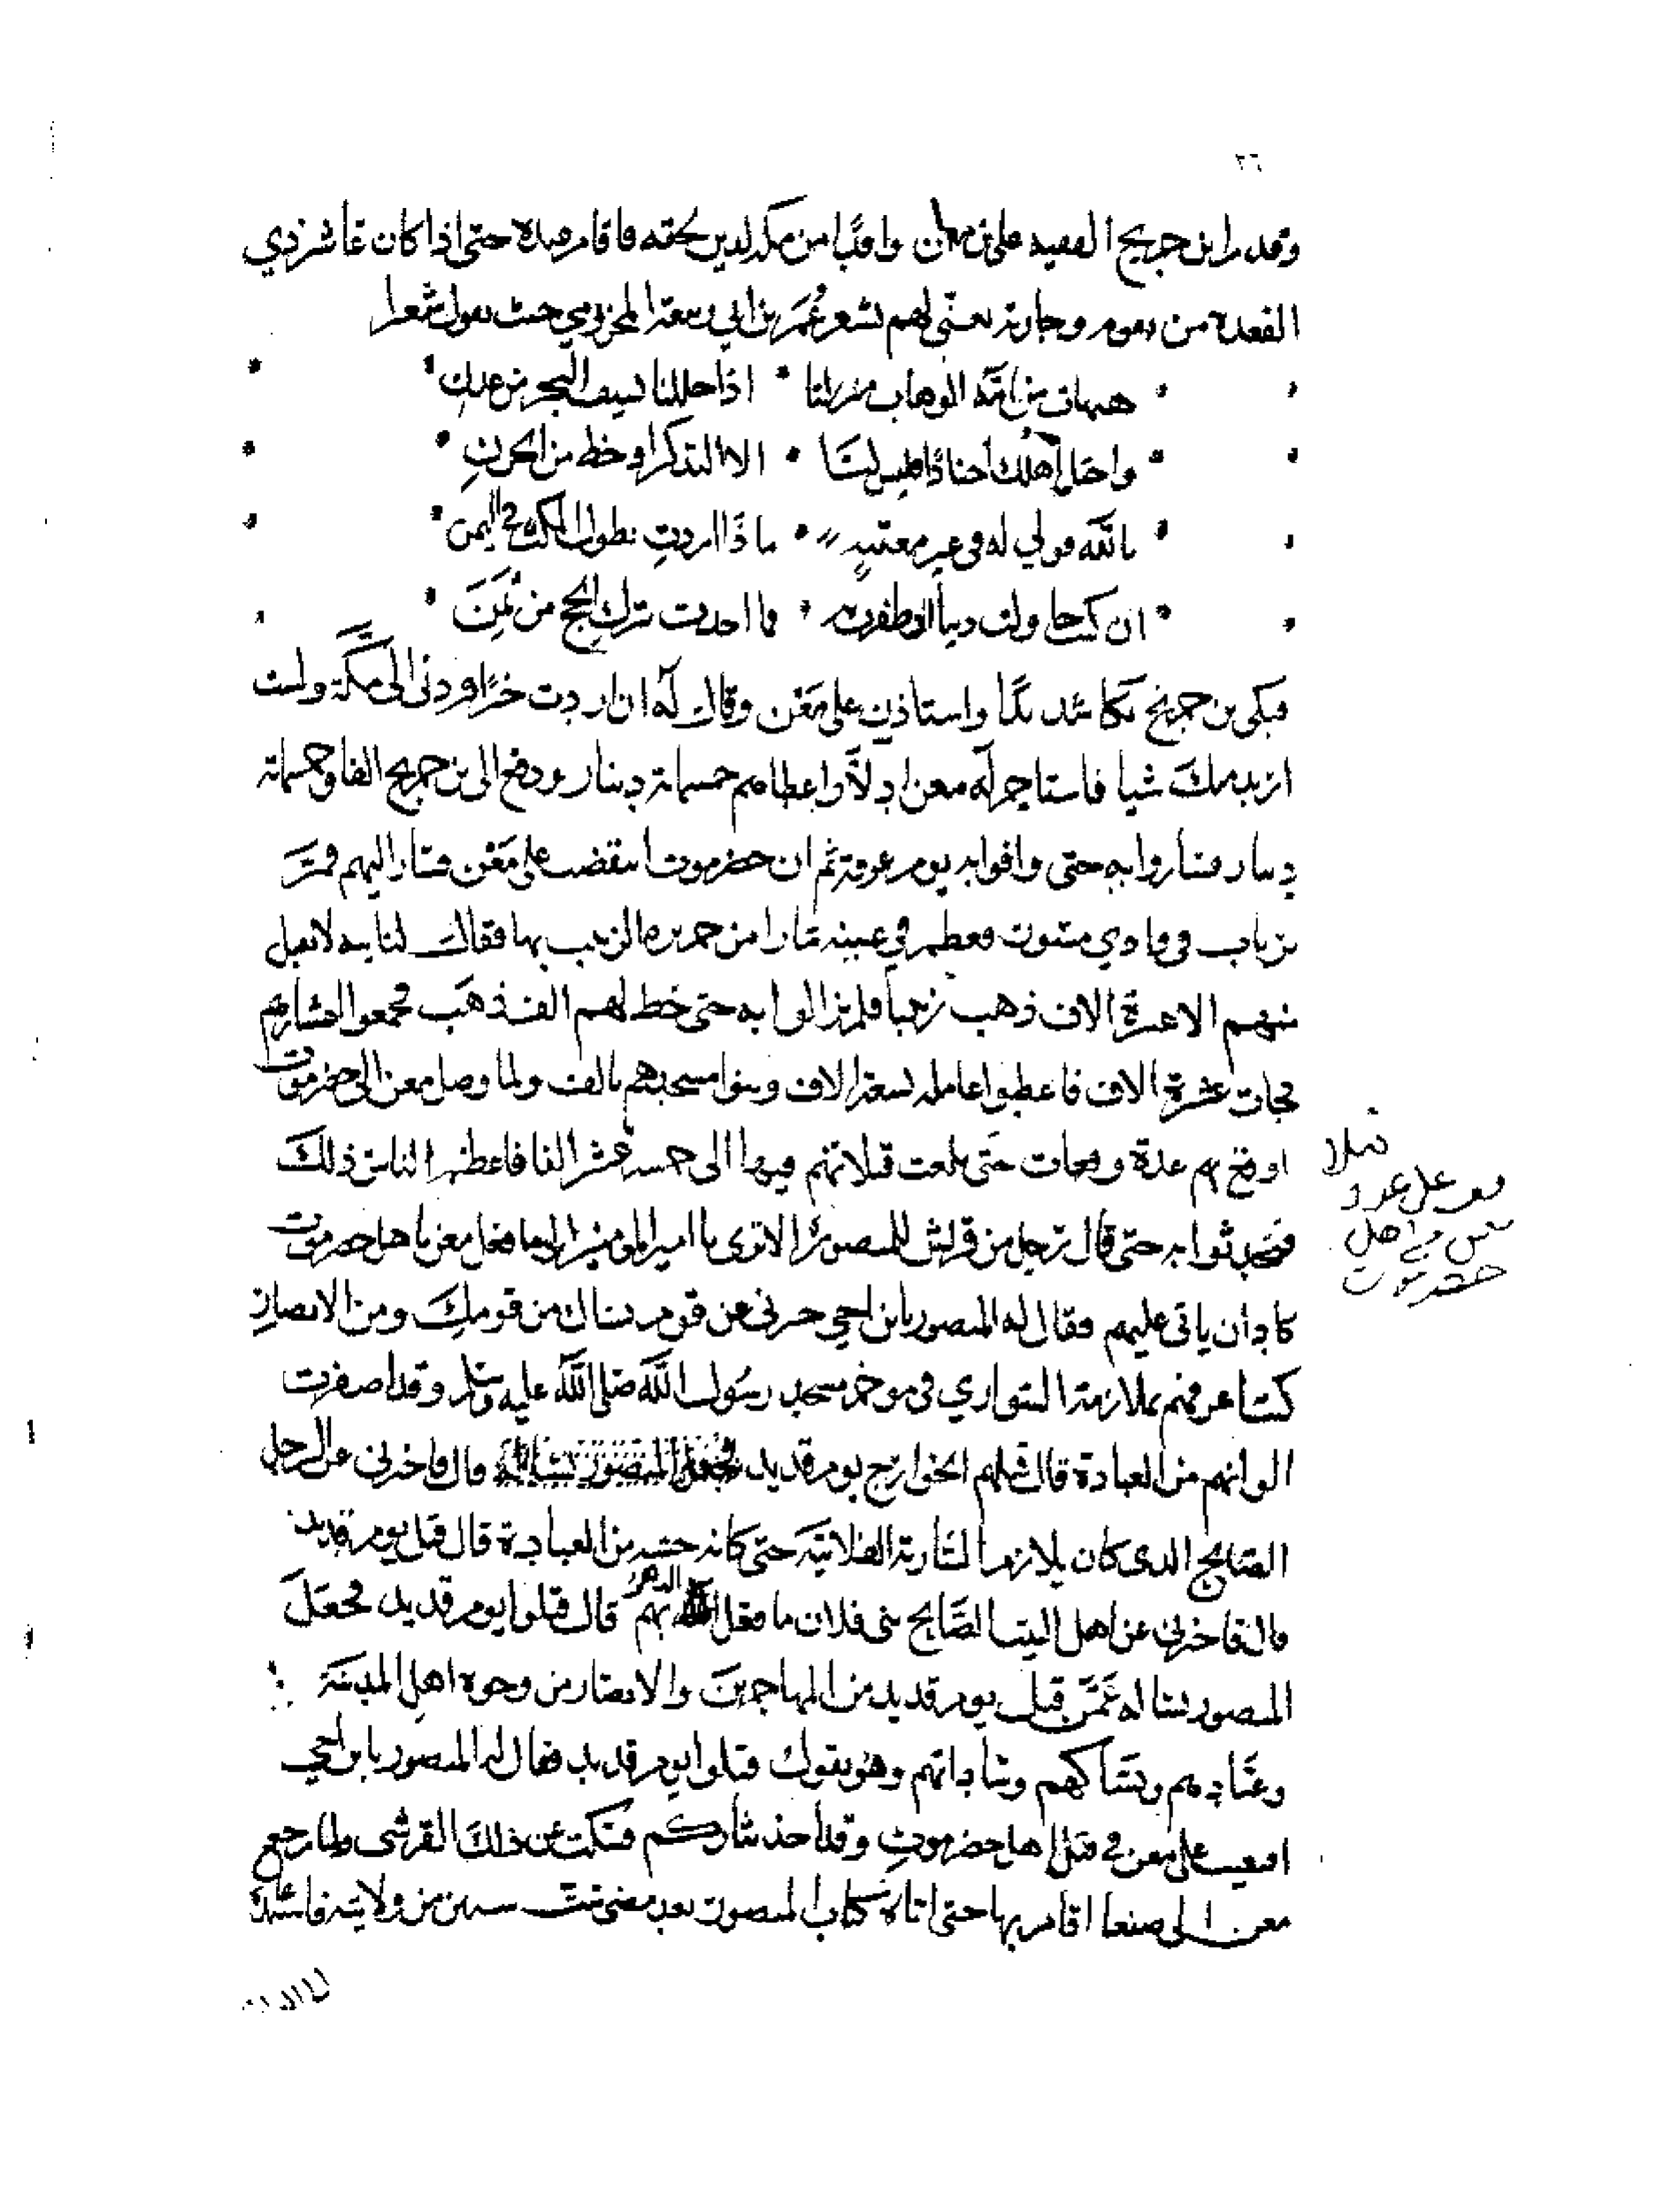 ٢٦
وقدم ابن جريج الفقيه على معن وافدا من مكه لدين لحقه فاقام عنده حتى اذا كان عاشر ذي
القعدة من يوم وجارية تغني لهم بشعر عمر بن ابي ربيعة المخزومي حيث يقول شعرا
هيهات من امة الوهاب منزلنا * اذا حللنا بسيف البحر من عدن
واحتل اهلك اجيادا فليس لنا * الا التذكر او حظ من الحزن
بالله قولي له في غير معتبة * ماذا اردت بطول المكث في اليمن
ان كنت حاولت دنيا او ظفرت بها * فما اخذت بترك الحج من ثمن
فبكى بن جريج بكا شديدا واستاذن على معن وقال له ان اردت خيرا فردني الى مكة ولست
اريد منك شيا فاستاجر له معن ادلا واعطاهم خمسماية دينار ودفع الى بن جريج الفا وخمسماية
دينار فساروا به حتى وافوا به يوم عرفة ثم ان حضرموت انتقضت على معن فسار اليهم فمر
في وادي فعظم في عينه ما را من فقال لنايبه لا تقبل
منهم الا عشرة الاف ذهب فلم يزالوا به حتى حط لهم الف ذهب فجمعوا
فجات عشرة الاف فاعطوا عامله تسعة الاف وبنوا مسجدهم بالف ولما وصل معن الى حضرموت
اوقع بهم عدة وقعات حتى بلغت قتلاتهم فيها الى خمسة عشر الفا فاعظم الناس ذلك
فتحدثوا به حتى قال رجل من قريش للمنصور الا ترى يا امير المومنين الى ما فعل معن باهل حضرموت
كاد ان ياتي عليهم فقال له المنصور يا بن اخي خبرني عن قوم نساك من قومك ومن الانصار
كنت اعرفهم بملازمة السواري في موخر مسجد رسول الله صلى الله عليه وسلم وقد اصفرت
الوانهم من العبادة قال قتلهم الخوارج يوم قديد قال فاخبرني عن الرجل
الصالح الذي كان يلازم السارية الفلانية حتى كانه خشبه من العبادة قال قتل يوم قديد
قال فاخبرني عن اهل البيت الصالح بني فلان ما فعل الدهر بهم قال قتلوا يوم قديد فجعل
المنصور يساله عمن قتل يوم قديد من المهاجرين والانصار من وجوه اهل المدينة
وعبادهم ونساكهم وساداتهم وهو يقول قتلوا يوم قديد فقال له المنصور يا بن اخي
افتعيب على معن في قتل اهل حضرموت وقد اخذ بثاركم فسكت عن ذلك القرشي ولما رجع
معن الى صنعا اقام بها حتى اتاه كتاب المنصور بعد مضي ست سنين من ولايته
قتلا
معن على عدد
من اهل
حضرموت